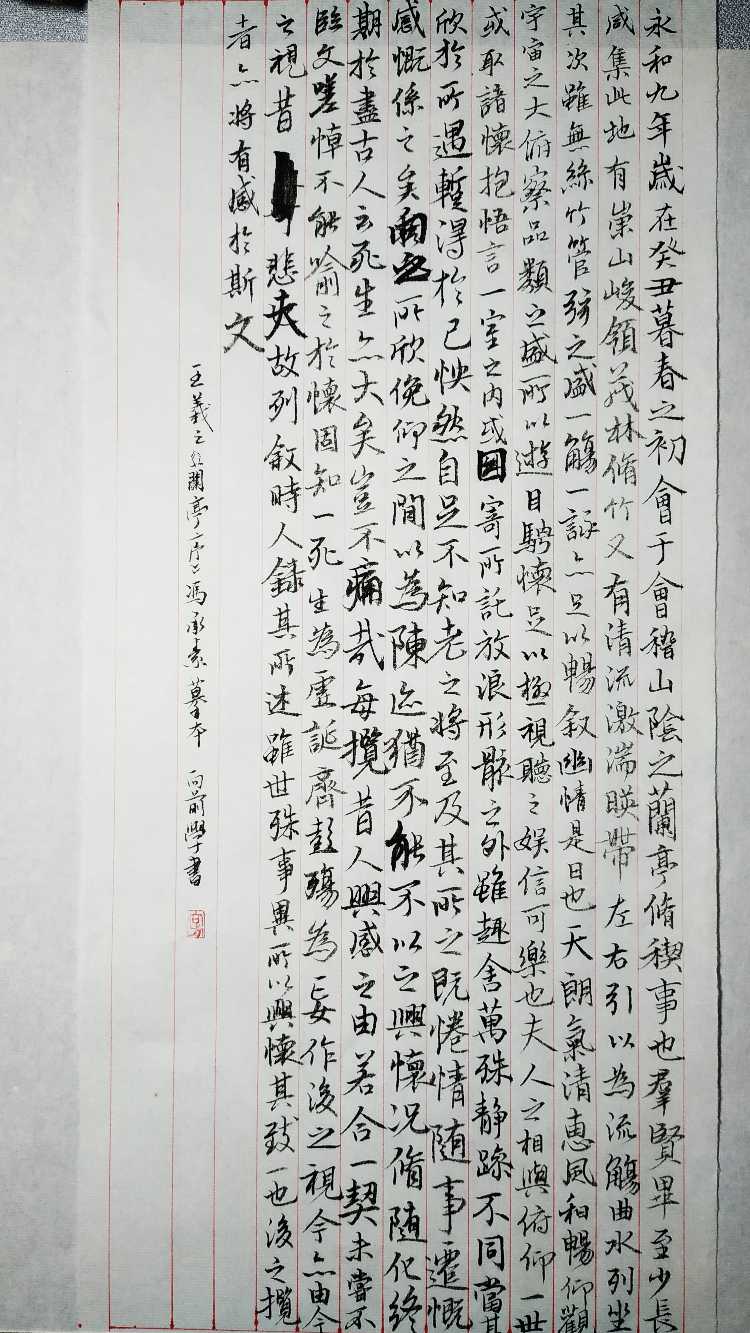 永和九年歲在癸丑暮春之初會于會稽山陰之蘭亭脩稧事也羣賢畢至少長
咸集此地有崇山峻領茂林脩竹又有清流激湍暎帶左右引以為流觴曲水列坐
其次雖無絲竹管弦之盛一觴一詠亦足以暢叙幽情是日也天朗氣清惠風和暢仰觀
宇宙之大俯察品類之盛所以遊目騁懷足以極視聽之娛信可樂也夫人之相與俯仰一世
或取諸懷抱悟言一室之内或因寄所託放浪形骸之外雖趣舍萬殊静躁不同當其
欣於所遇暫得於己怏然自足不知老之將至及其所之既惓情隨事遷慨
感慨係之矣向之所欣俛仰之間以為陳迹猶不能不以之興懷況脩隨化終
期於盡古人云死生亦大矣豈不痛哉每攬昔人興感之由若合一契未嘗不
臨文嗟悼不能喻之於懷固知一死生為虛誕齊彭殤為妄作後之視今亦由今
之視昔悲夫故列叙時人錄其所述雖世殊事異所以興懷其致一也後之攬
者亦將有感於斯文
王羲之蘭亭序馮承素摹本 向前學書